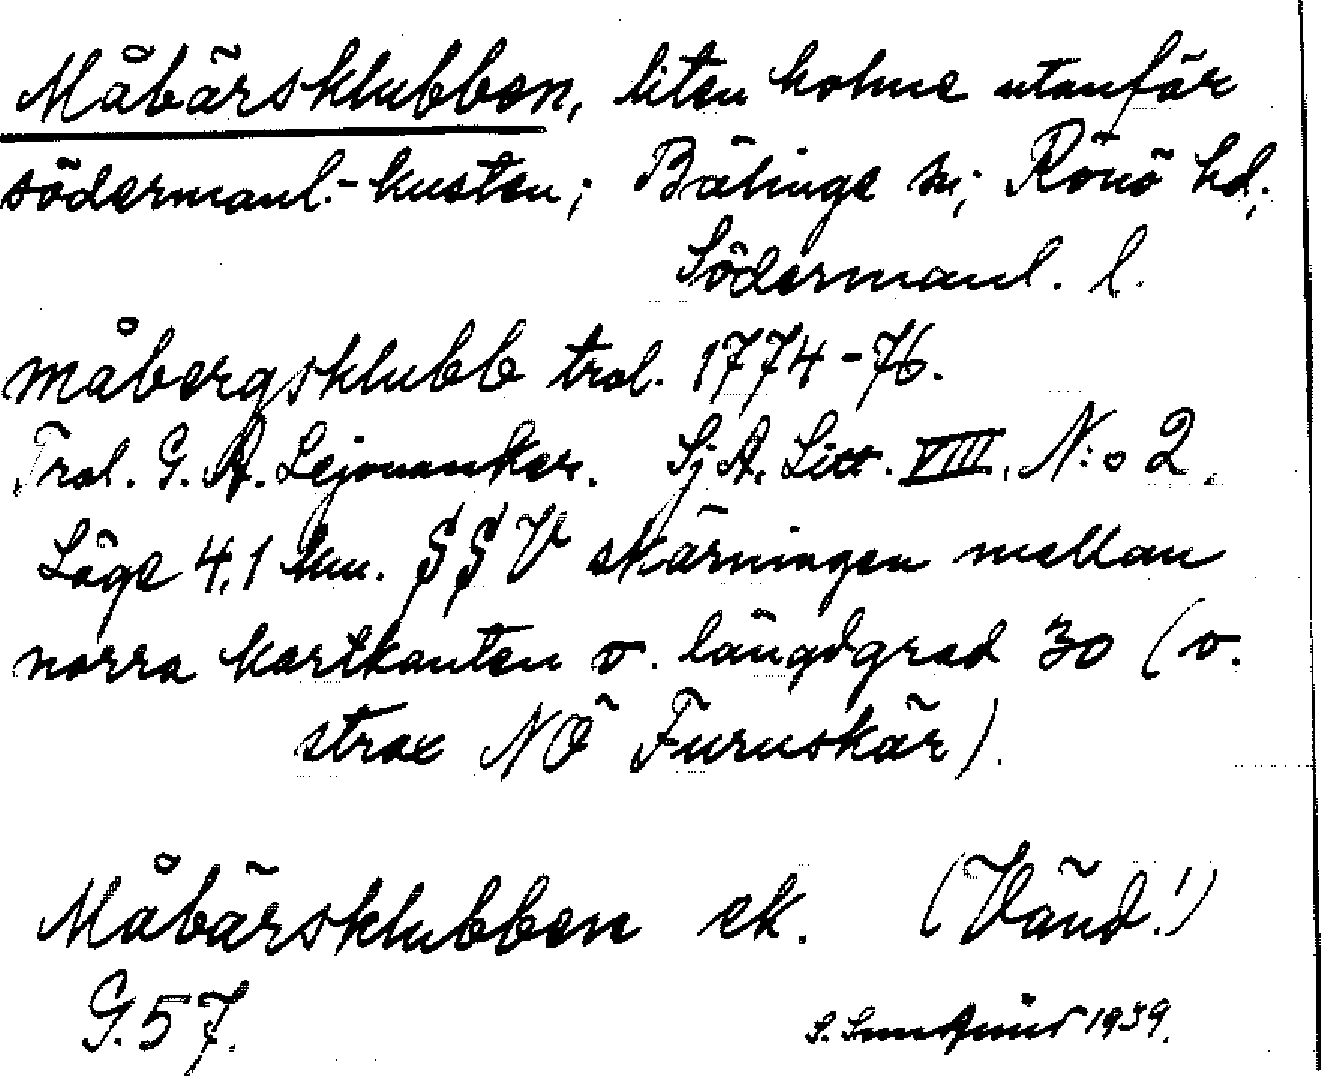 Måbärsklubben, liten holme utanför
södermanl.-kusten; Bälinge sn; Rönö hd;
Södermanl. l.
måbergsklubb trol. 1774-76.
Trol. G. A. Lejonanker. SjA. Litt. VIII. N:o 2.
Läge 4,1 km. SSV skärningen mellan
norra kartkanten o. längdgrad 30 (o.
strax NÖ Furuskär).
Måbärsklubben ek. (Vänd!)
G. 57. 1939.